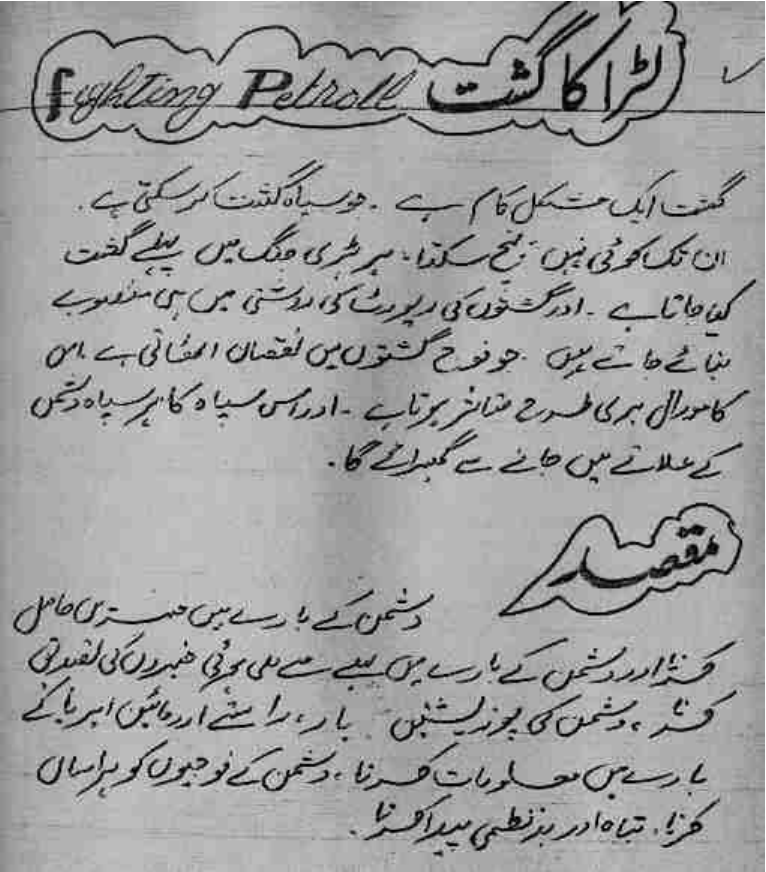 Fighting Petroll لڑاکا گشت
گشت ایک مشکل کام ہے ۔ جو سپاہ گشت کر سکتی ہے ۔
ان تک کوئی نہیں پہنچ سکتا ، ہر بڑی جنگ میں پہلے گشت
کیا جاتا ہے ۔ اور گشتوں کی رپورٹ کی روشنی میں ہی منصوبے
بنائے جاتے ہیں ۔ جو فوج گشتوں میں نقصان اٹھاتی ہے اس
کا مورال بری طرح متاثر ہوتا ہے ۔ اور اس سپاہ کا ہر سپاہ دشمن
کے علاقے میں جانے سے گھبرائے گا ۔
مقصد
دشمن کے بارے میں خبریں حاصل
کرنا اور دشمن کے بارے میں پہلے سے ملی ہوئی خبروں کی تصدیق
کرنا ، دشمن کی پوزیشنیں بار ، راستے اور مائین ایریا کے
بارے میں معلومات کرنا ، دشمن کے فوجیوں کو ہراساں
کرنا ، تباہ اور بدنظمی پیدا کرنا ۔